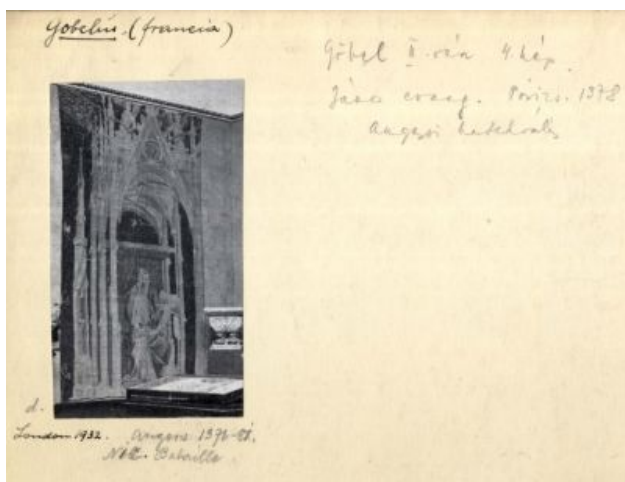 Gobelin. (francia)
Göbel II. rész 4. kép
János evang. Párizs. 1378
Angersi katedrális
d.
London 1932. Angers 1376-81.
Nic. Bataille